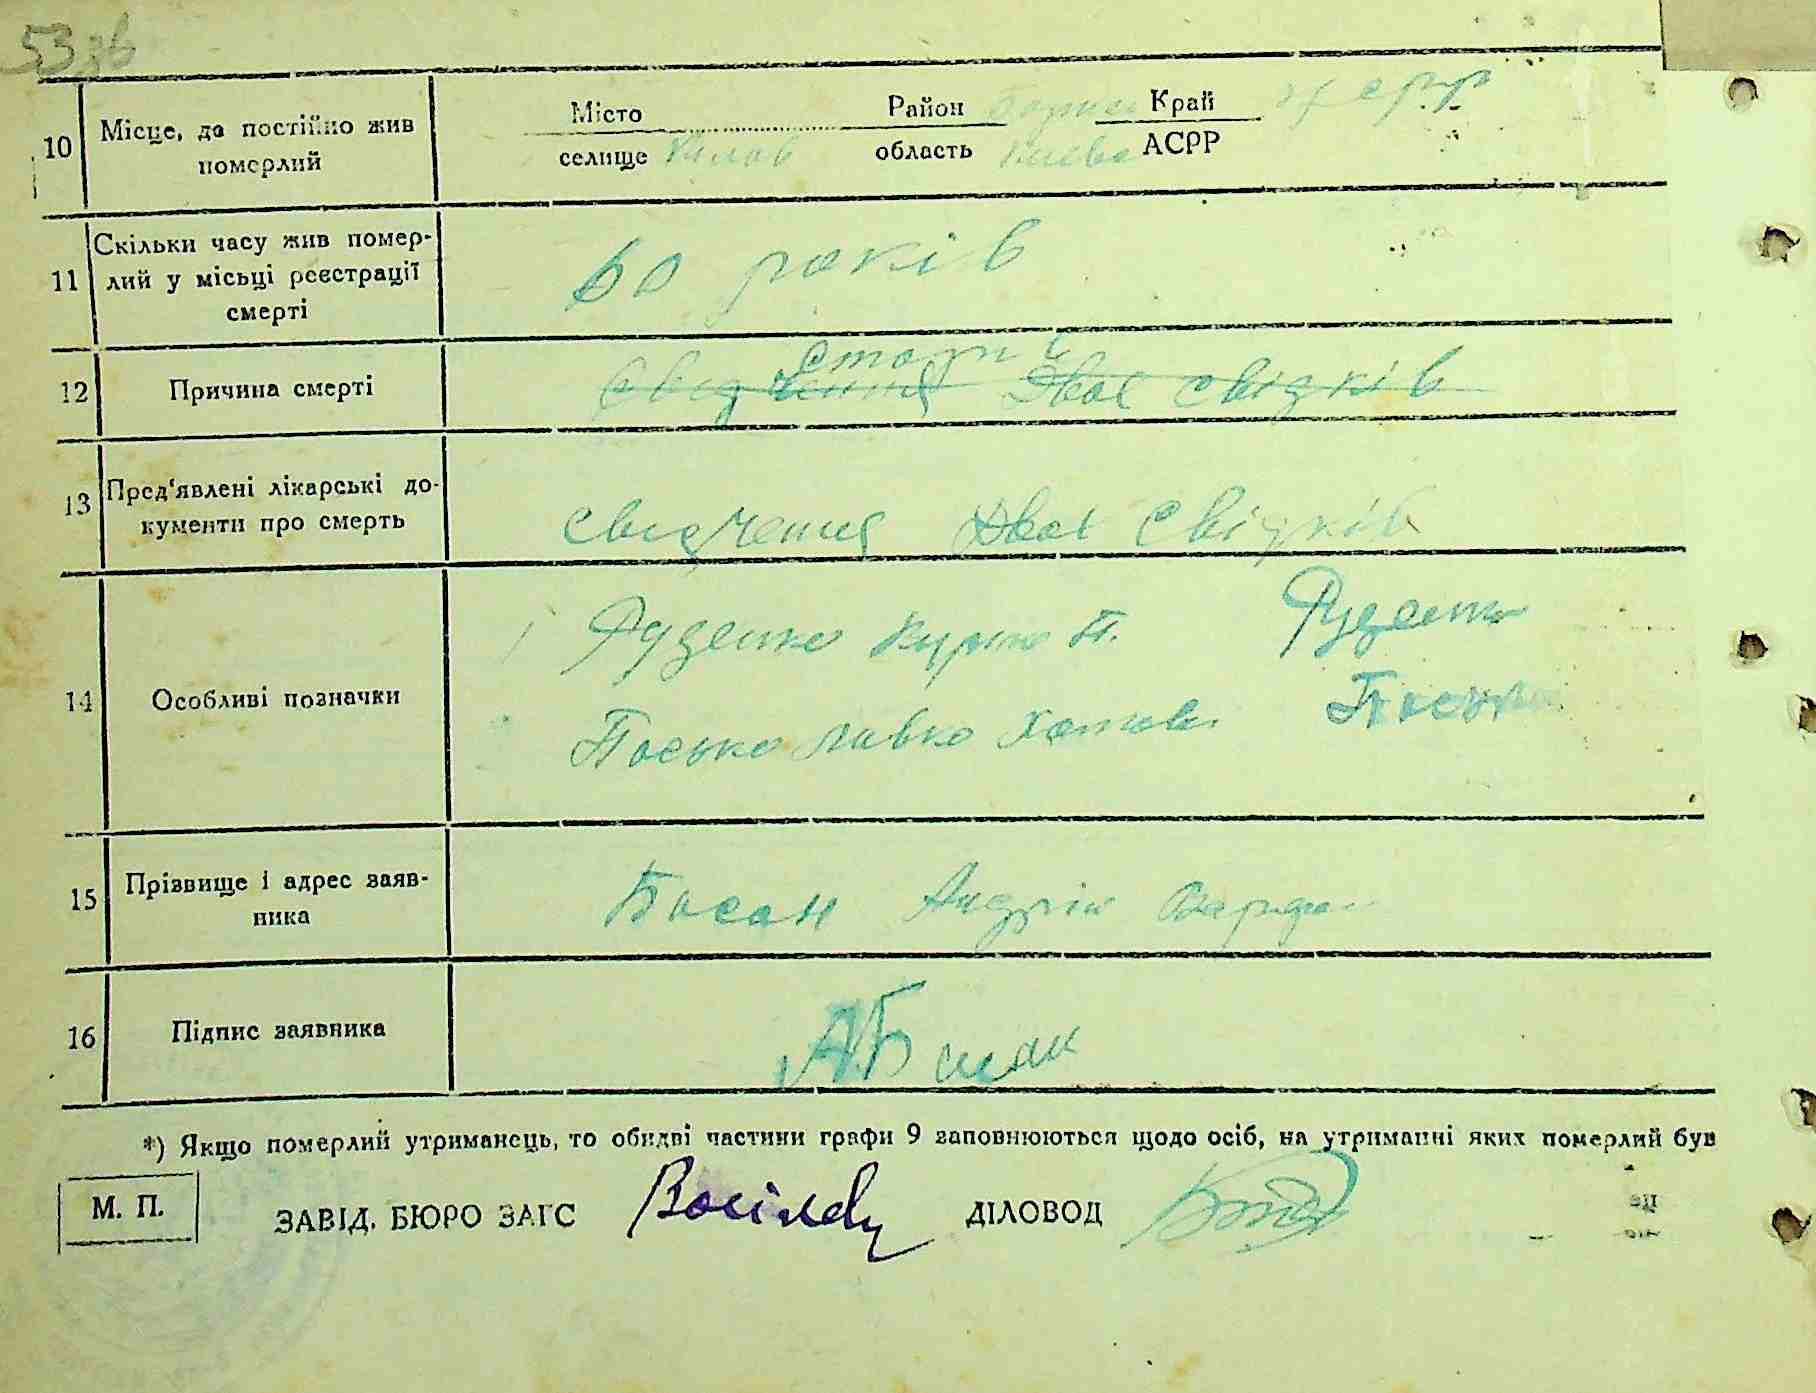 53зв
10 Місце, де постійно жив померлий
Місто Район Край УСРР
селище область Києвс АСРР
11 Скільки часу жив помер-
лий у місьці реєстрації
смерті
60 років
12 Причина смерті
Старист
Свидчення двох свідків
13 Пред'явлені лікарські до-
кументи про смерть
свидчення двох свідків
14 Особливі позначки
Руденко П. Руденко
Поська Павко Поська
15 Прізвище і адрес заяв-
ника
Басан Андрій
16 Підпис заявника
А Басан
*) Якщо померлий утриманець, то обидві частини графи 9 заповнюються щодо осіб, на утриманні яких померлий був
М. П. ЗАВІД. БЮРО ЗАГС ДІЛОВОД